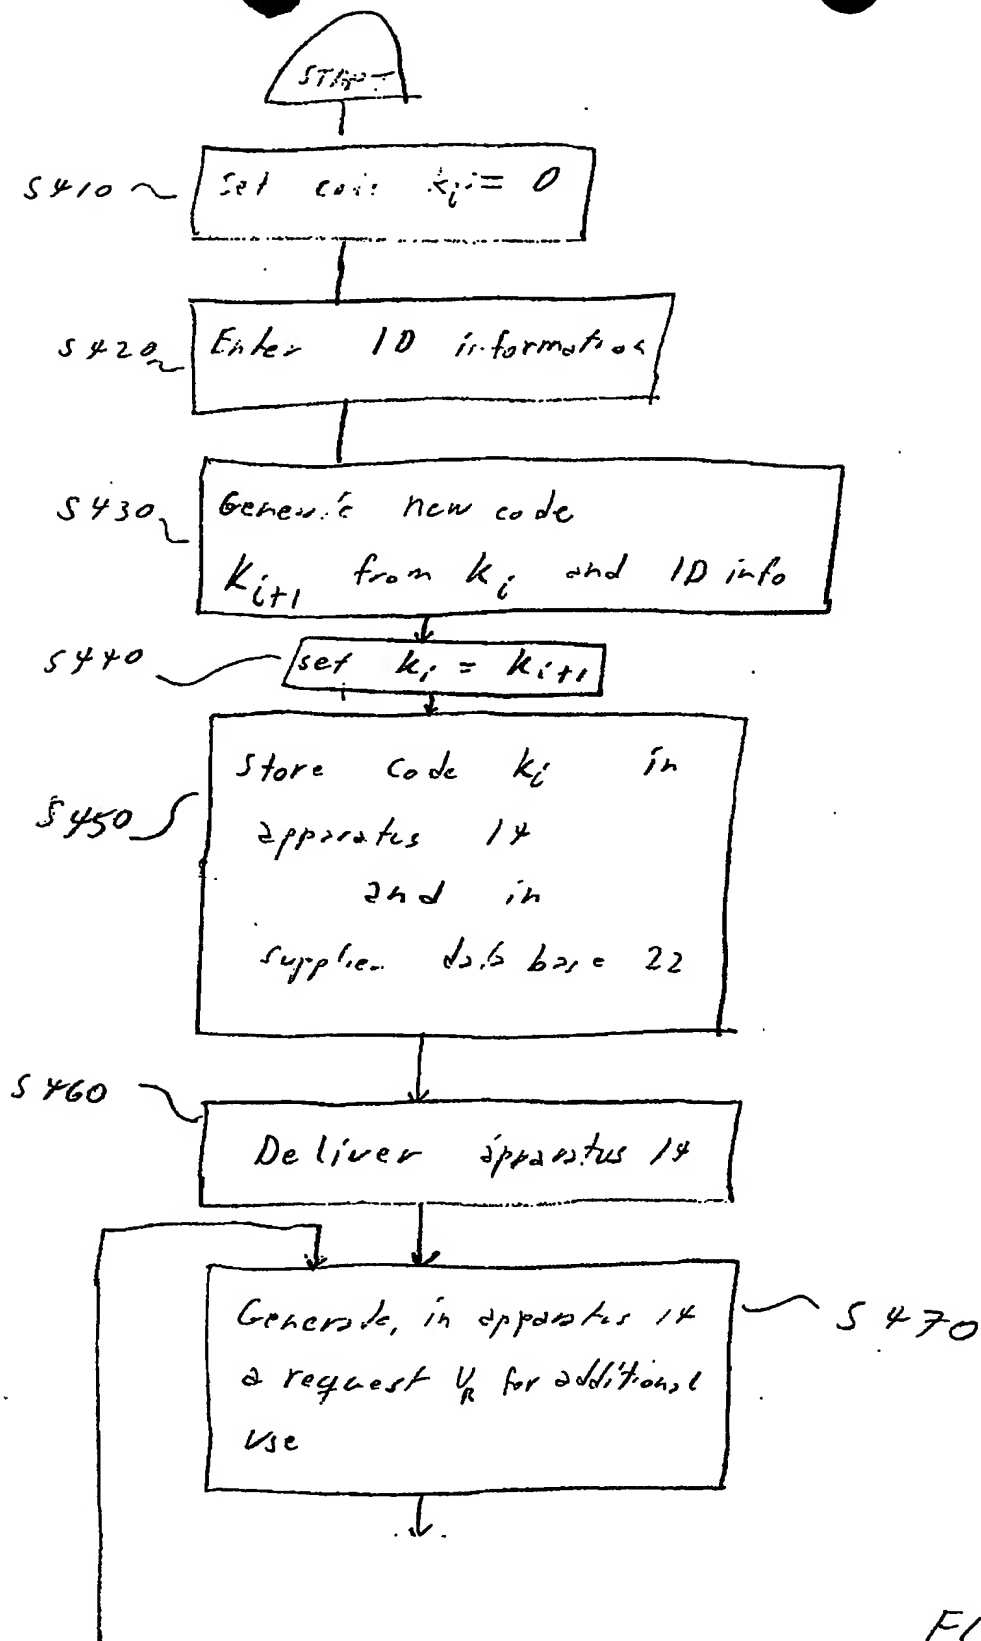 START
S410
Set code ki = 0
S420
Enter ID information
S430
Generate new code
Ki+1 from Ki and ID info
S440
set ki = ki+1
S450
Store code ki in
apparatus 14
and in
supplier data base 22
S460
Deliver apparatus 14
Generate, in apparatus 14
a request UR for additional
use
S470